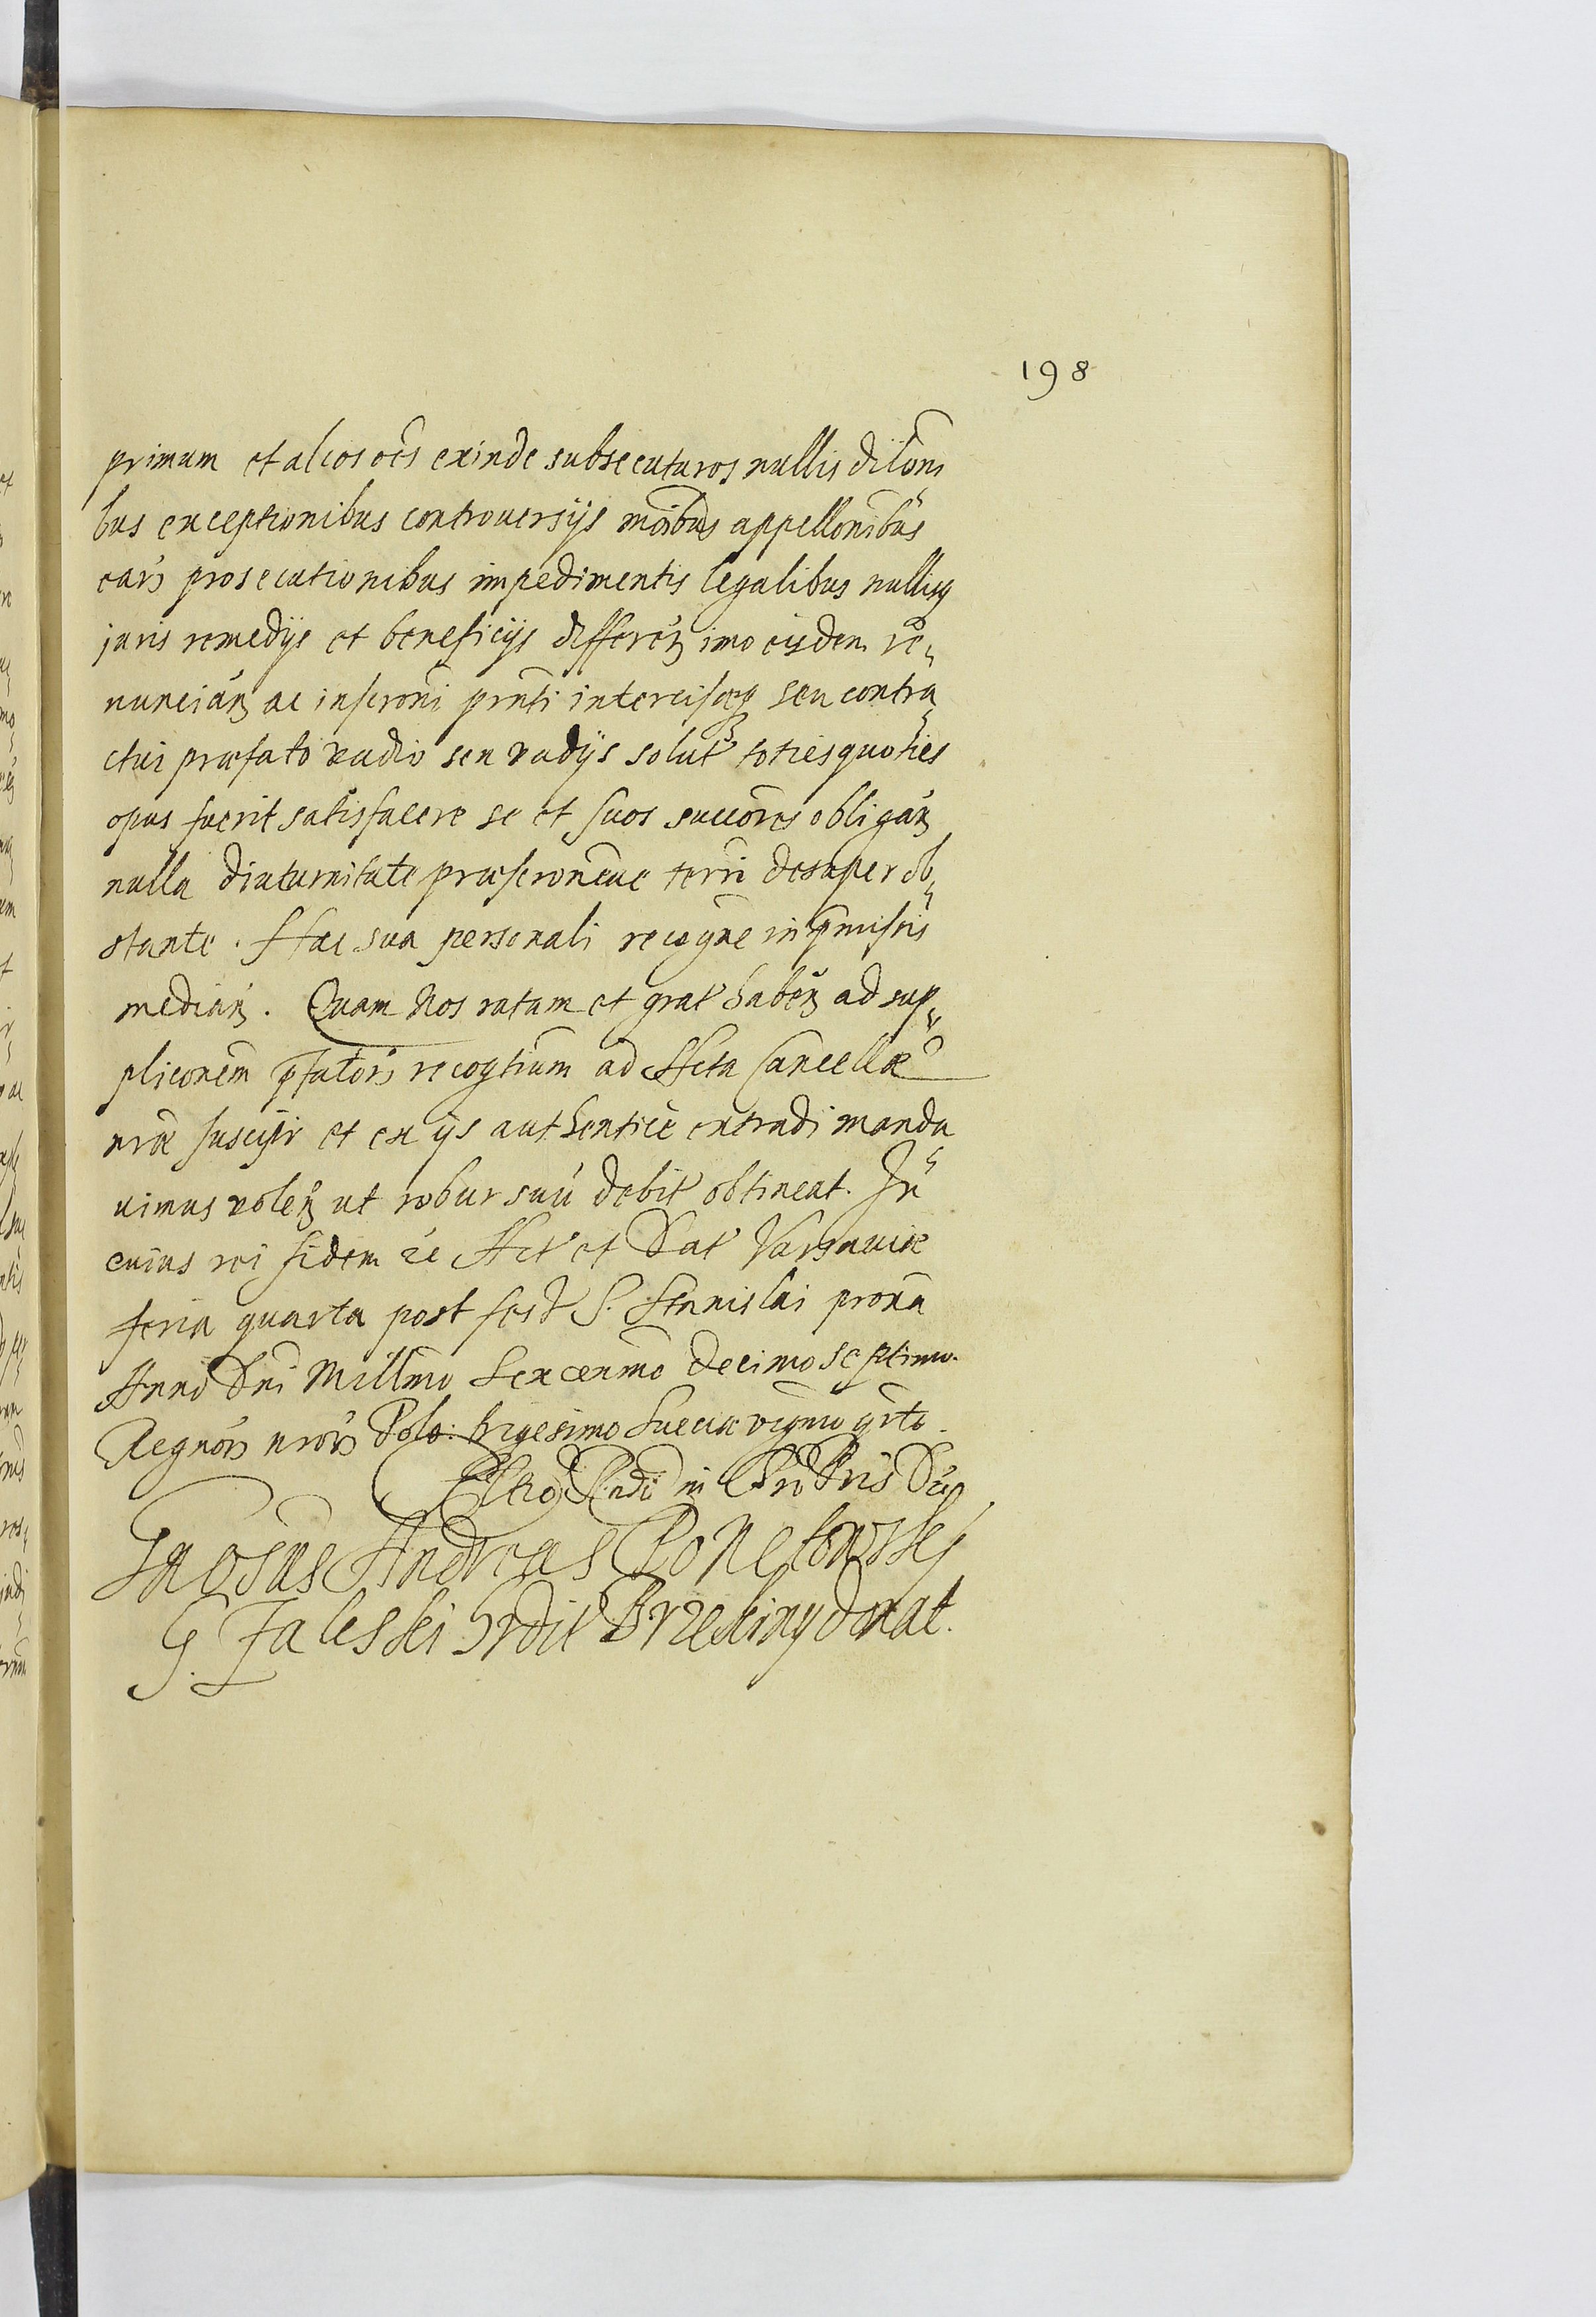 198
primum et alios oēs exinde subsecuturos nullis dilōni
bus exceptionibus controuersijs mōibus appellōnibus
earū prosecutionibus impedimentis legalibus nullisq
juris remedijs et beneficijs differēn imo eisdem re„
nuncian ac inscrōni prnti intercisæq seu contra„
ctui præfato vadio seu vadijs solut totiesquoties
opus fuerit satisfacere se et suos succōres obligan
nulla diuturnitate præscrōneue terri desuper ob„
stante. Hac sua personali recogne in pmissis
median. Quam Nos ratam et grat haben ad sup„
pliconem pfatorū recogtium ad Acta Cancellæ
nræ suscipi et ex ijs authentice extradi manda
uimus volen ut robur suū debit obtineat. In
cuius rei fidem &c Act et Dat Varsauiæ
feria quarta post fest S. Stanislai proxa
Anno Dni Millmo Sexcenmo decimo septimo.
Regnorū nrorū Polo: Trigesimo Sueciæ vigmo qrto.
in
Andreas
G. Zaleski donat.